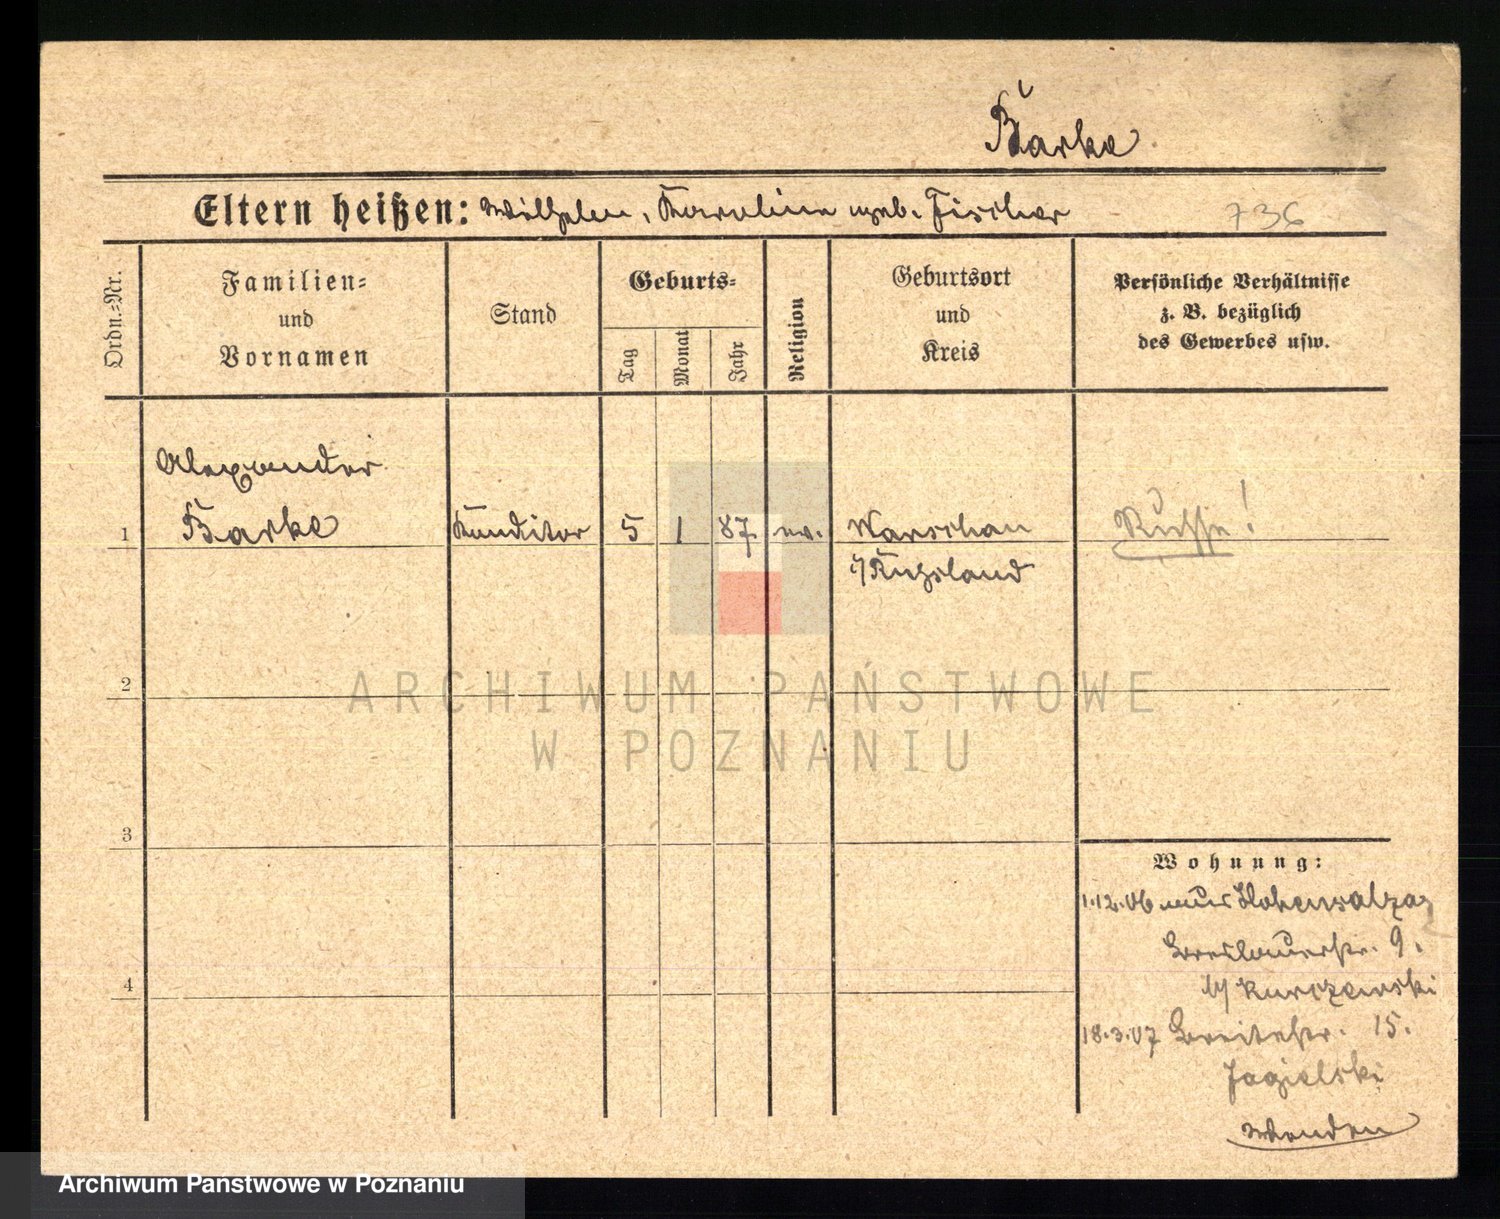 Barke
Eltern heißen: Wilhelm, Karoline geb. Fischer
736
Ordn.=Nr.
Familien=
und
Vornamen
Stand
Geburts=
Tag
Monat
Jahr
Religion
Geburtsort
und
Kreis
Persönliche Verhältnisse
z. B. bezüglich
des Gewerbes usw.
Alexander
1 Barke Konditor 5 1 87 ev. Warschau Russe!
i/Russland
2
ARCHIWUM PAŃSTWOWE
W POZNANIU
3
Wohnung:
1.12.06 aus Hohensalza
Breslauerstr. 9.
b/ Kurczewski
4
18.3.07 Breitestr. 15.
Jagielski
Wenden
Archiwum Państwowe w Poznaniu